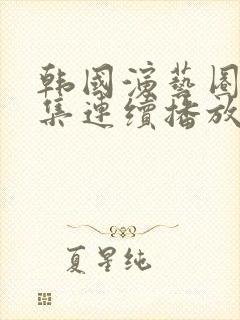 韩國演藝圈
集連續播放
夏星纯